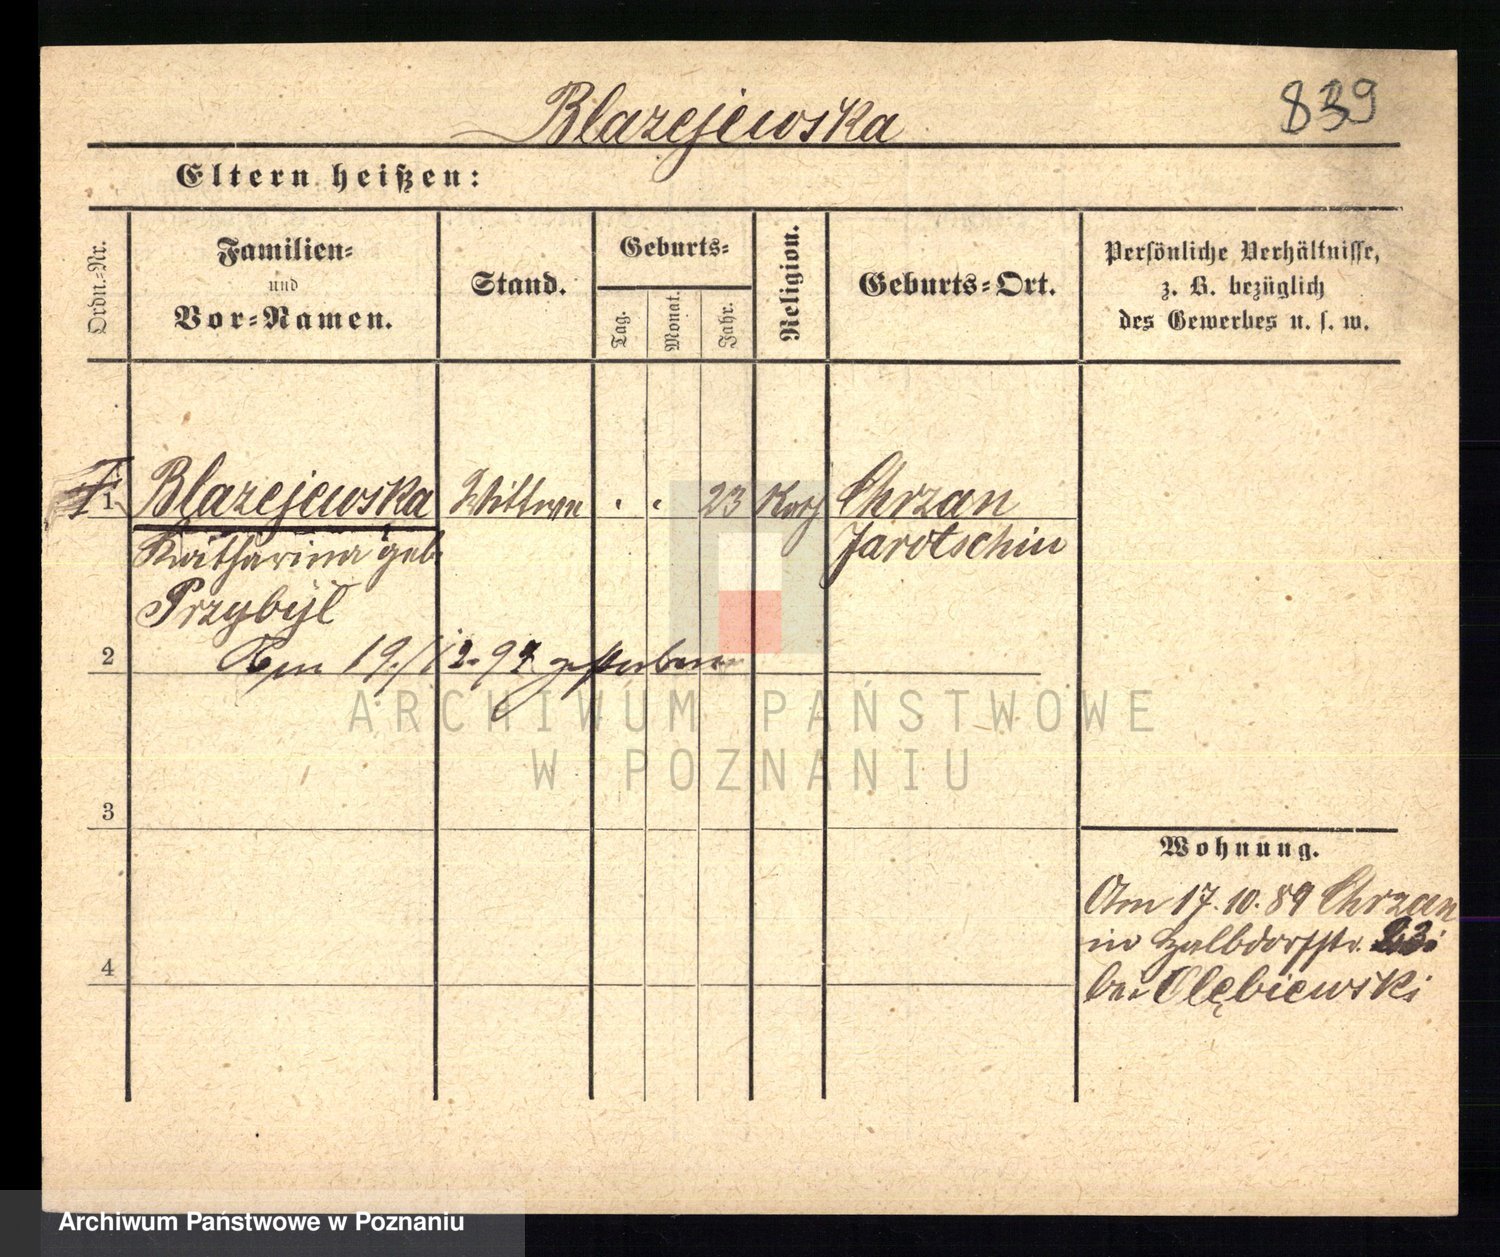 Blazejewska
839
Eltern heißen:
Ordn.-Nr.
Familien-
und
Vor-Namen.
Stand.
Geburts-
Tag.
Monat.
Jahr.
Religion.
Geburts-Ort.
Persönliche Verhältnisse,
z. B. bezüglich
des Gewerbes u. s. w.
1 Blazejewska Wittwe . . 23 Kath Chrzan
Katharina geb. Jarotschin
Przybÿl
2 Am 19./12. gestorben
ARCHIWUM PAŃSTWOWE
W POZNANIU
3
Wohnung.
Am 17.10.89 Chrzan
in Halbdorfstr. 23.
4
bei Olębiewski
Archiwum Państwowe w Poznaniu